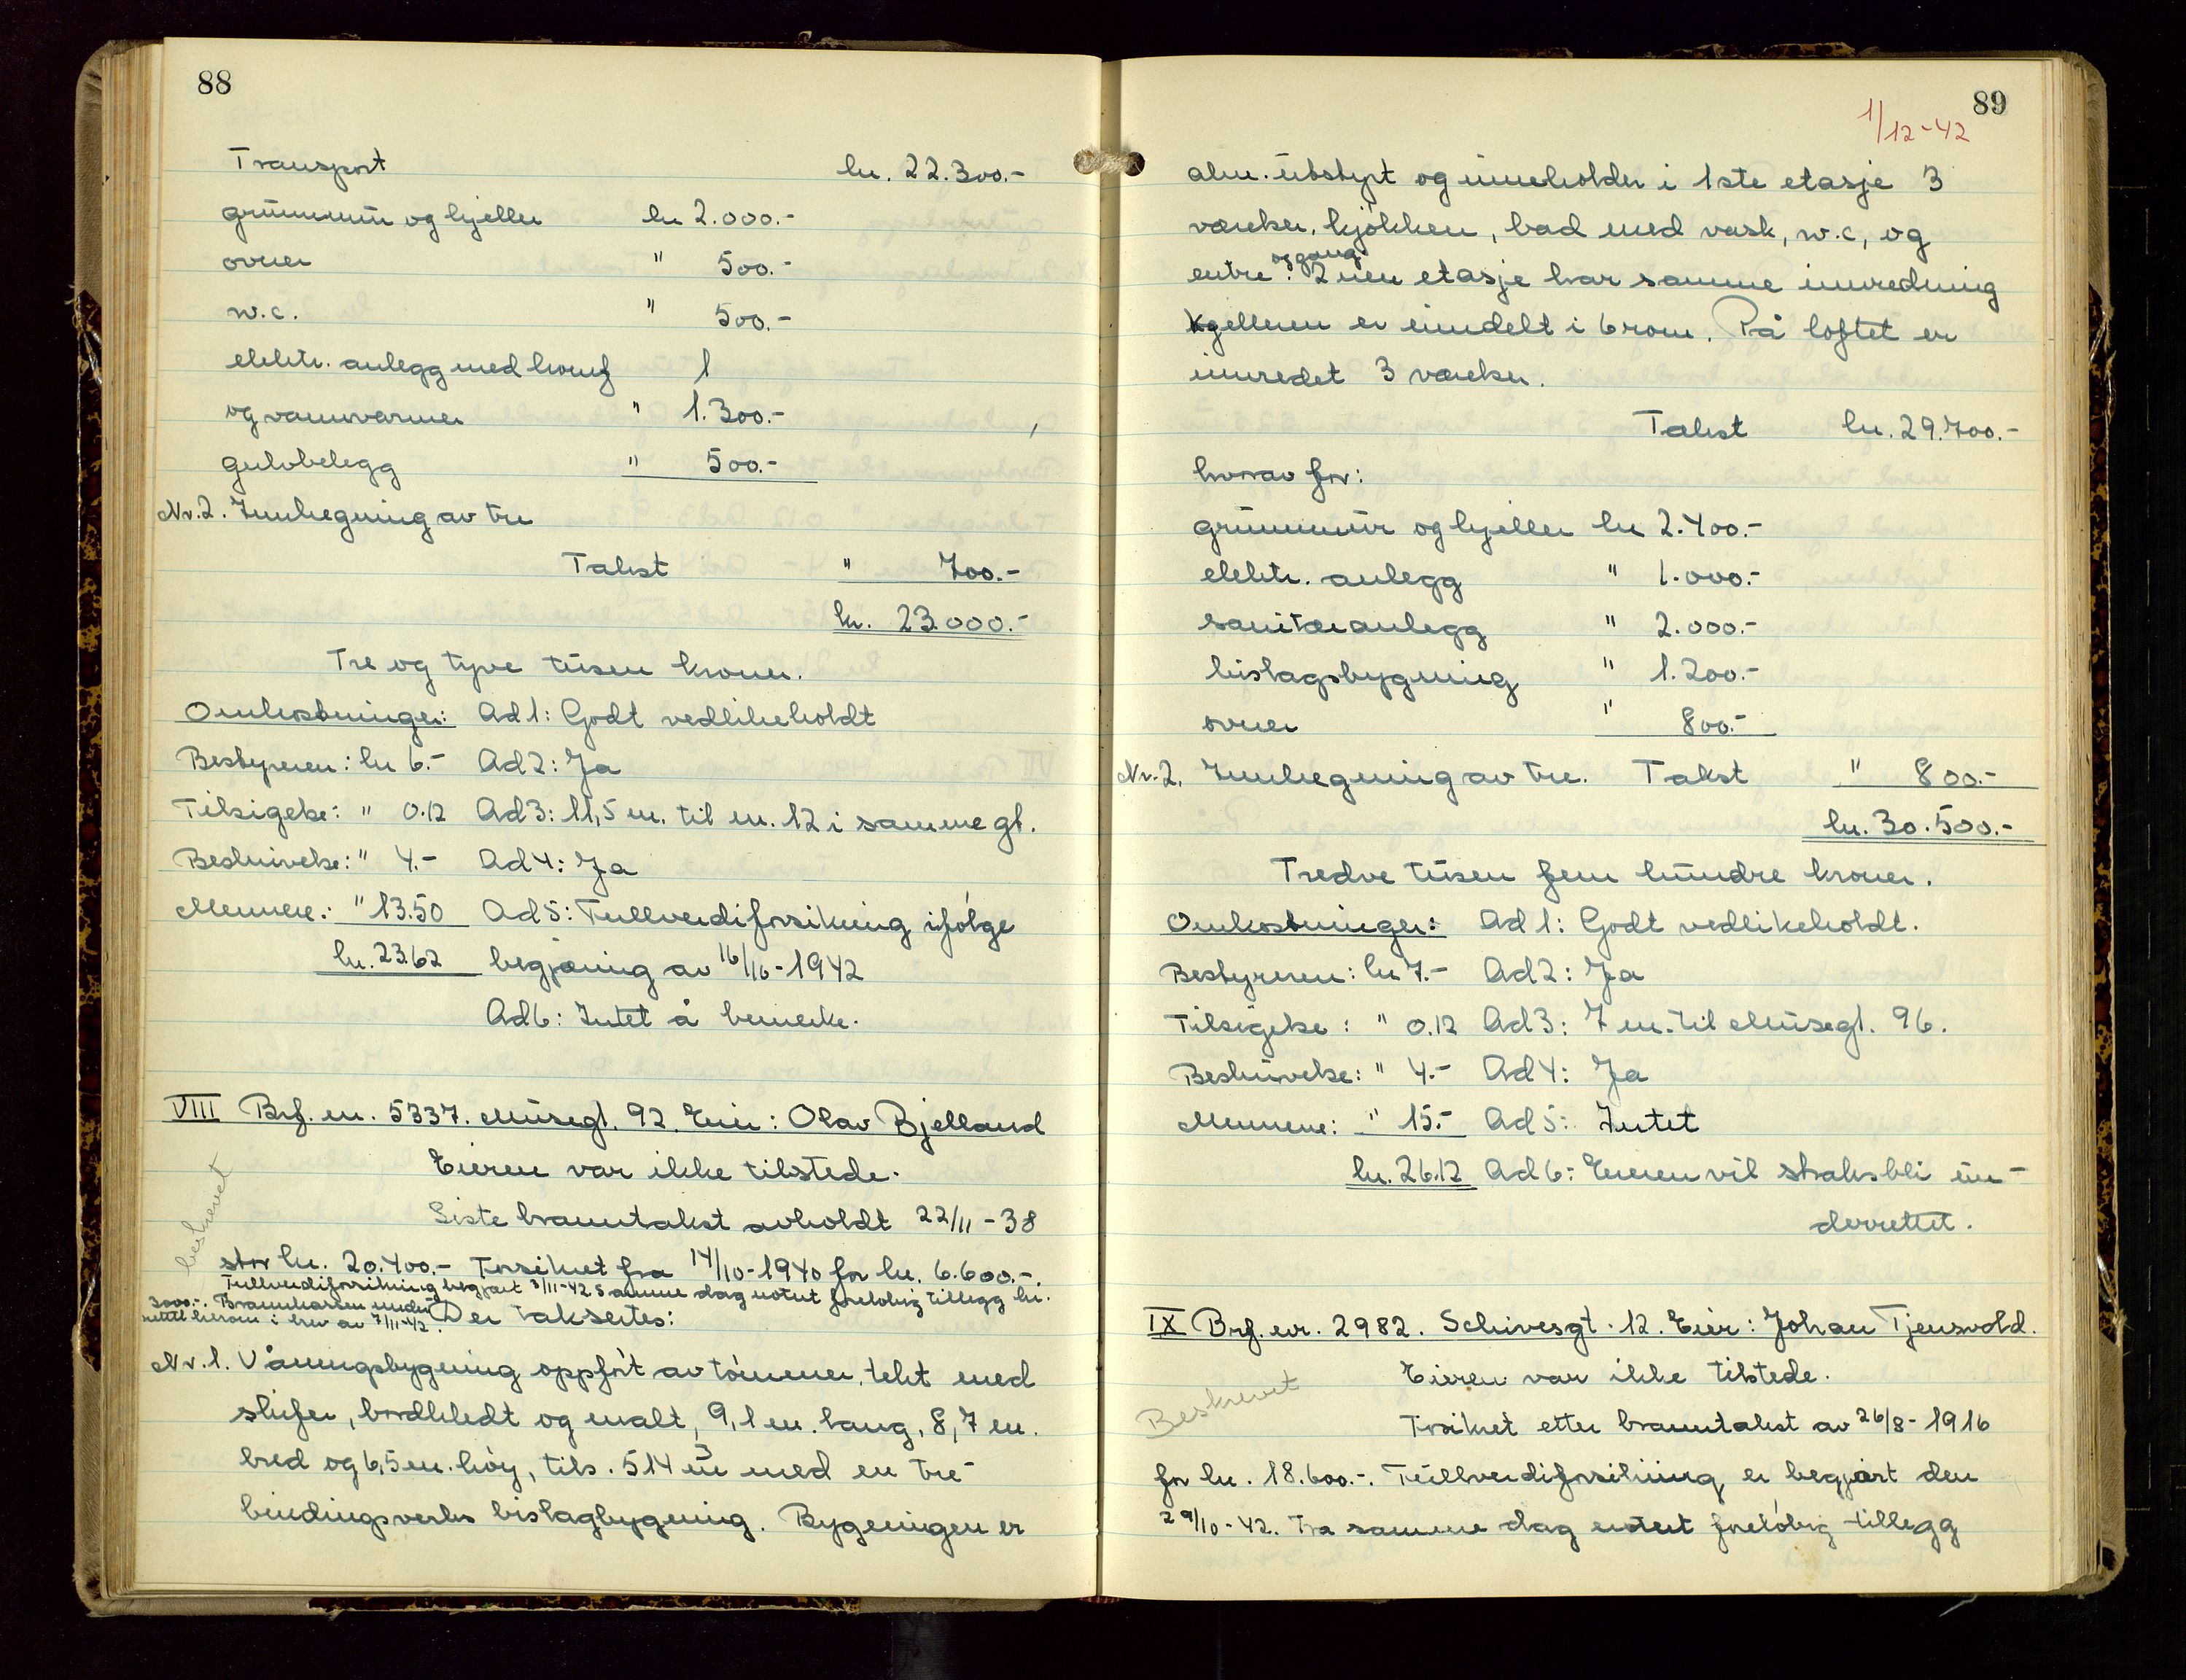 88
Transport kr. 22.300.-
grunnmur og kjeller kr 2.000.-
ovner " 500.-
w.c. " 500.-
elektr. anlegg med komf
og vannvarmer " 1.300.-
gulvbelegg " 500.-
Nr. 2. Innhegning av tre
Takst " 700.-
kr. 23.000.-
Tre og tyve tusen kroner.
Omkostninger: Ad 1: Godt vedlikeholdt
Bestyreren: kr 6.- Ad 2: Ja
Tilsigelse: " 0.12 Ad 3: 11,5 m. til nr. 12 i samme gt.
Beskrivelse: " 4.- Ad 4: Ja
Mennene: " 13.50 Ad 5: Fullverdiforsikring ifølge
kr. 23.62 begjæring av 16/10-1942
Ad 6: Intet å bemerke.
VIII Brf. nr. 5337. Musegt. 92. Eier: Olav Bjelland
Eieren var ikke tilstede.
Siste branntakst avholdt 22/11-38
beskrevet
stor kr. 20.400.- Forsikret fra 14/10-1940 for kr. 6.600.-.
Fullverdiforsikring begjært 3/11-42 samme dag notert foreløbig tillegg kr.
3000.-. Brannkassen under
rettet herom i brev av 7/11-42.
Der takseres:
Nr. 1. Våningsbygning oppført av tømmer, tekt med
skifer, bordkledt og malt, 9,1 m. lang, 8,7 m.
bred og 6,5 m. høy, tils. 514 m3 med en tre-
bindingsverks bislagbygning. Bygningen er
89
1/12-42
alm. utstyrt og inneholder i 1ste etasje 3
værelser, kjøkken, bad med vask, w.c, og
entre og gang. 2nen etasje har samme innredning
Kjelleren er inndelt i 6 rom. På loftet er
innredet 3 værelser.
Takst kr. 29.700.-
hvorav for:
grunnmur og kjeller kr 2.400.-
elektr. anlegg " 1.000.-
sanitæranlegg " 2.000.-
bislagsbygning " 1.200.-
ovner " 800.-
Nr. 2. Innhegning av tre. Takst " 800.-
kr. 30.500.-
Tredve tusen fem hundre kroner.
Omkostninger: Ad 1: Godt vedlikeholdt.
Bestyreren: kr 7.- Ad 2: Ja
Tilsigelse: " 0.12 Ad 3: 7 m. til Musegt. 96.
Beskrivelse: " 4.- Ad 4: Ja
Mennene: " 15.- Ad 5: Intet
kr. 26.12 Ad 6: Eieren vil straks bli un-
derrettet.
IX Brf. nr. 2982. Schivesgt. 12. Eier: Johan Tjensvold.
Eieren var ikke tilstede.
Beskrevet
Forsikret etter branntakst av 26/8-1916
for kr. 18.600.-. Fullverdiforsikring er begjært den
29/10-42. Fra samme dag notert foreløbig tillegg